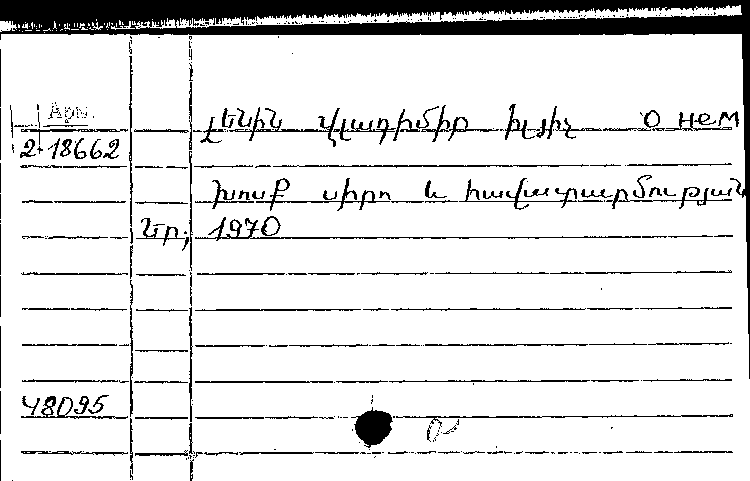 Арм.
Լենին Վլադիմիր Իլյիչ О нем
2-18662
Խոսք սիրո և հավատարմության
Եր; 1970
48095